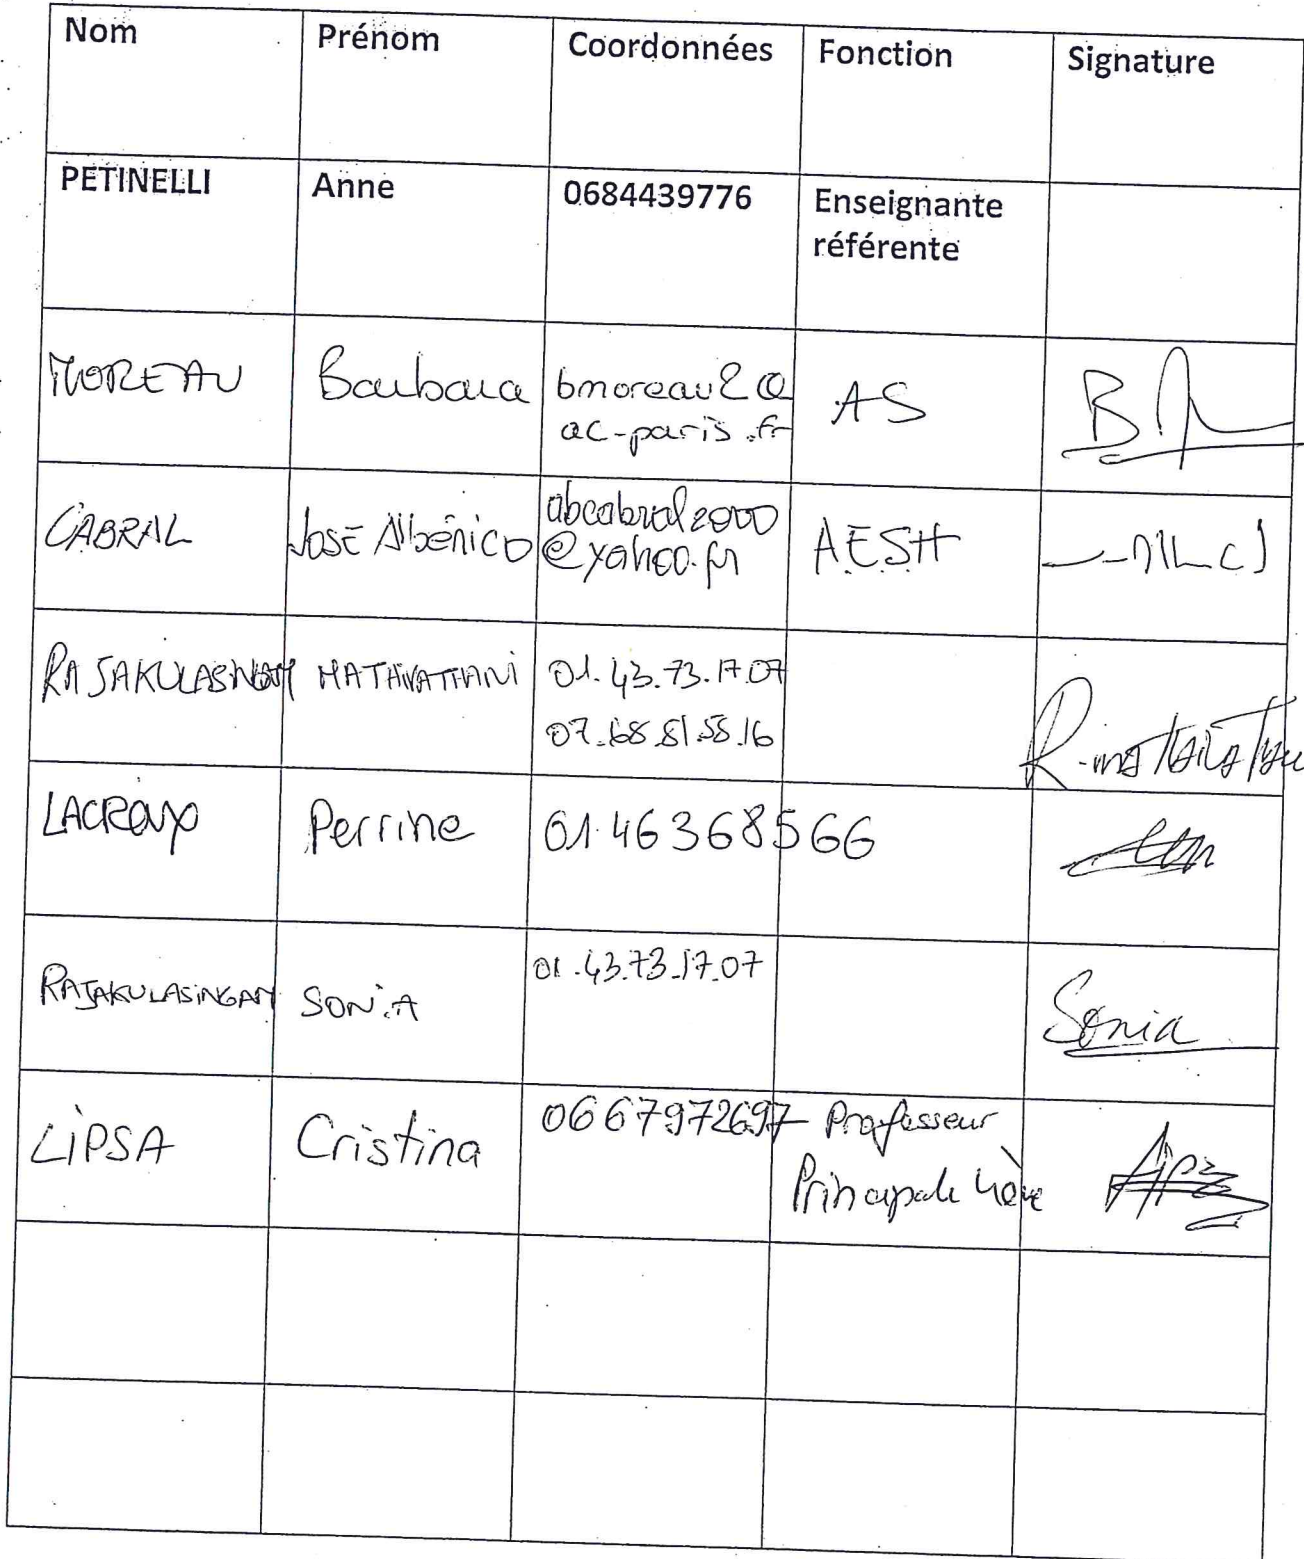 Nom Prénom Coordonnées Fonction Signature
PETINELLI Anne 0684439776 Enseignante
référente
MOREAU Barbara bmoreau2@
ac-paris.fr AS
CABRAL José Albérico abcabral2000
@yahoo.fr A.E.S.H
RAJAKULASINGAM MATHIVATHANI 01.43.73.17.07
07.68.81.55.16
LACROIX Perrine 01.46368566
RAJAKULASINGAM SONIA 01.43.73.17.07 Sonia
LIPSA Cristina 0667972697 Professeur
Principale 4ème